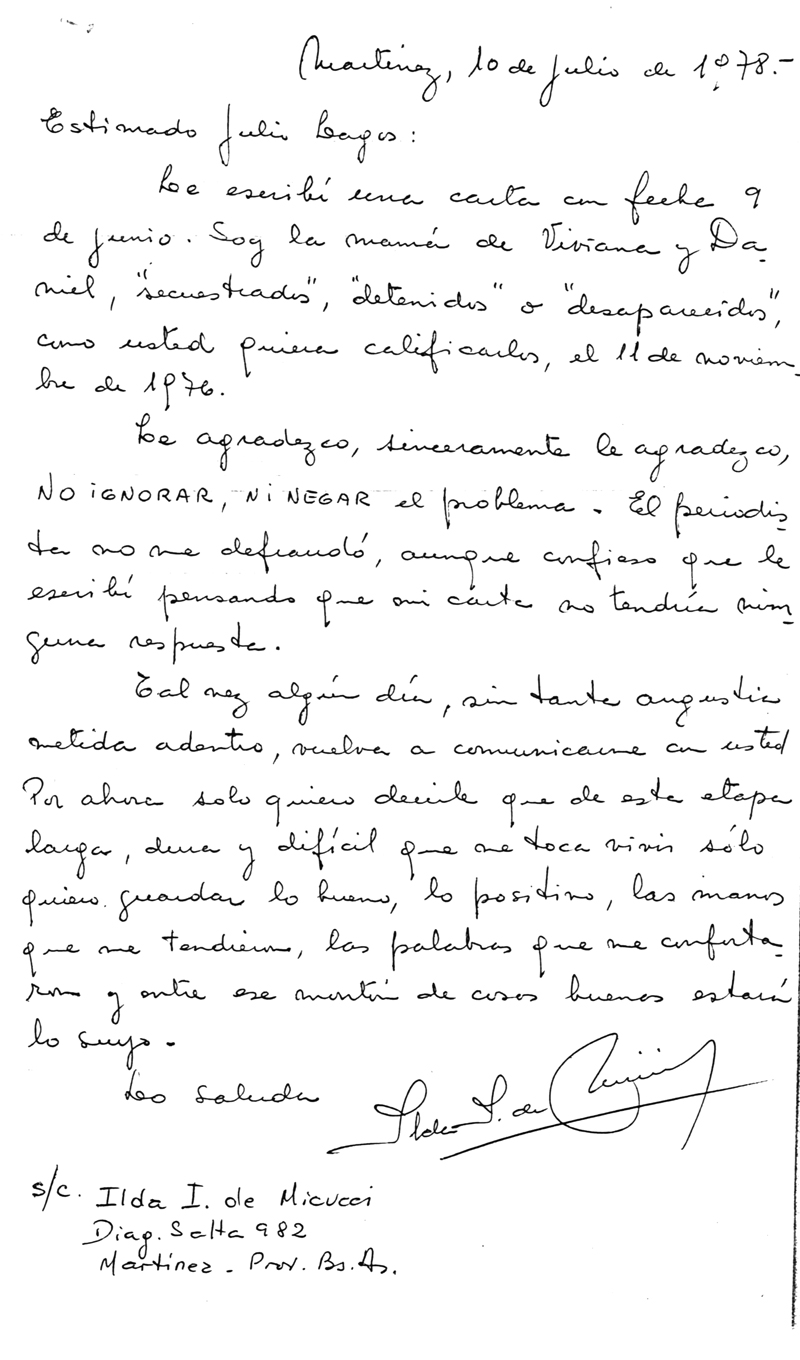 Martínez, 10 de Julio de 1978.-
Estimado Julio Lagos:
Le escribí una carta con fecha 9
de junio. Soy la mamá de Viviana y Da-
niel, "secuestrados", "detenidos" o "desaparecidos",
como usted quiera calificarlos, el 11 de noviem-
bre de 1976.
Le agradezco, sinceramente le agradezco,
NO IGNORAR, NI NEGAR el problema. El periodis-
ta no me defraudó, aunque confieso que le
escribí pensando que mi carta no tendría nin-
guna respuesta.
Tal vez algún día, sin tanta angustia
metida adentro, vuelva a comunicarme con usted
Por ahora solo quiero decirle que de esta etapa
larga, dura y difícil que me toca vivir sólo
quiero guardar lo bueno, lo positivo, las manos
que me tendieron, las palabras que me conforta-
ron y entre ese montón de cosas buenas estará
lo suyo.-
Lo saluda
Ilda I. de Micucci
s/c. Ilda I. de Micucci
Diag. Salta 982
Martínez - Prov. Bs. As.